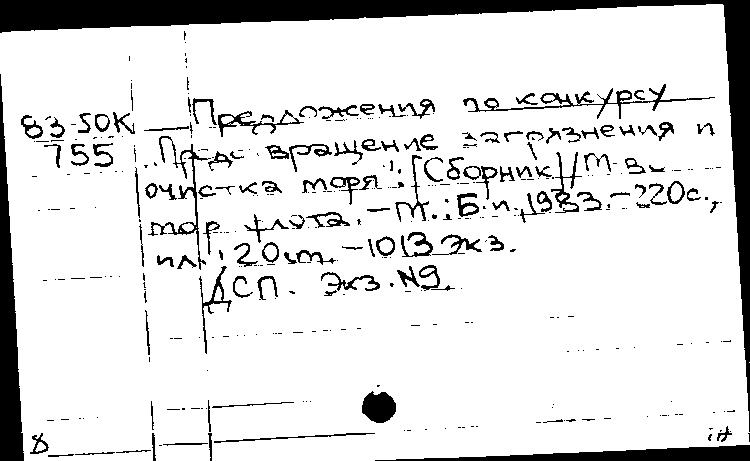 83-50К Предложения по конкурсу
755 "Предовращение загрязнения и
очистка моря": [Сборник] / М-во
мор. флота. – М.: Б.и., 1983. – 220 с.,
ил.; 20 см. – 1013 экз.
ДСП. Экз. N9.
8